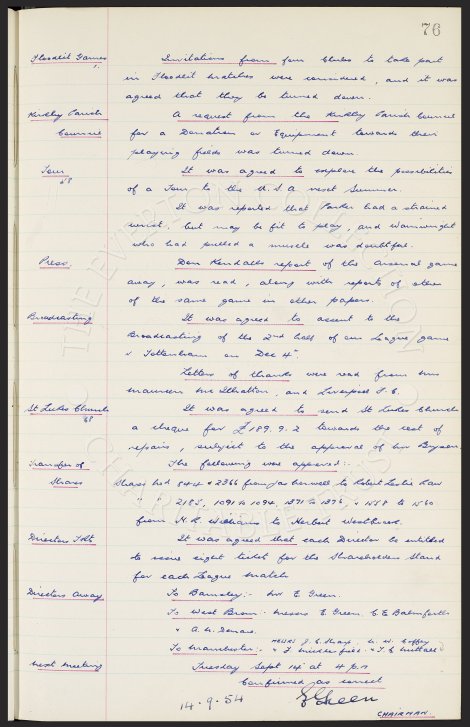 76
Floodlit Games Invitations from four Clubs to take part
in Floodlit matches were considered, and it was
agreed that they be turned down.
Kirkby Parish A request from the Kirkby Parish Council
Council for a Donation or Equipment towards their
playing fields was turned down.
Tour It was agreed to explore the possibilities
of a Tour to the U.S.A next Summer.
It was reported that Parker had a strained
wrist, but may be fit to play, and Wainwright
who had pulled a muscle was doubtful.
Press. Don Kendall's report of the Arsenal game
away, was read, along with reports of other
of the same game in other papers.
Broadcasting It was agreed to assent to the
Broadcasting of the 2nd half of our League game
v Tottenham on Dec 4th.
Letters of thanks were read from
and Liverpool F.C.
St Lukes Church It was agreed to send St Lukes Church
a cheque for £189.9.2 towards the cost of
repairs, subject to the approval of
Transfer of The following were approved:-
Shares Shares Nos 844 & 2366 from to Robert Leslie
" 2183, 1091 to 1094, 1371 to 1376, & 1558 to 1560
from Williams to Herbert Westbrook.
Directors Tkt It was agreed that each Director be entitled
to issue eight ticket for the Shareholders Stand
for each League match
Directors Away To Barnsley:- Mr E. Green.
To West Brom:- Messrs E. Green, C E Balmforth
& A. W. Denaro.
To Manchester:- Messrs J. C. Sharp, W. W. Gaffey
& F. Micklesfield. & T. C. Nuttall
Next Meeting Tuesday Sept 14th at 4 p.m
Confirmed as correct
14.9.54 E Green
CHAIRMAN.
THE EVERTON COLLECTION
CHARITABLE TRUST